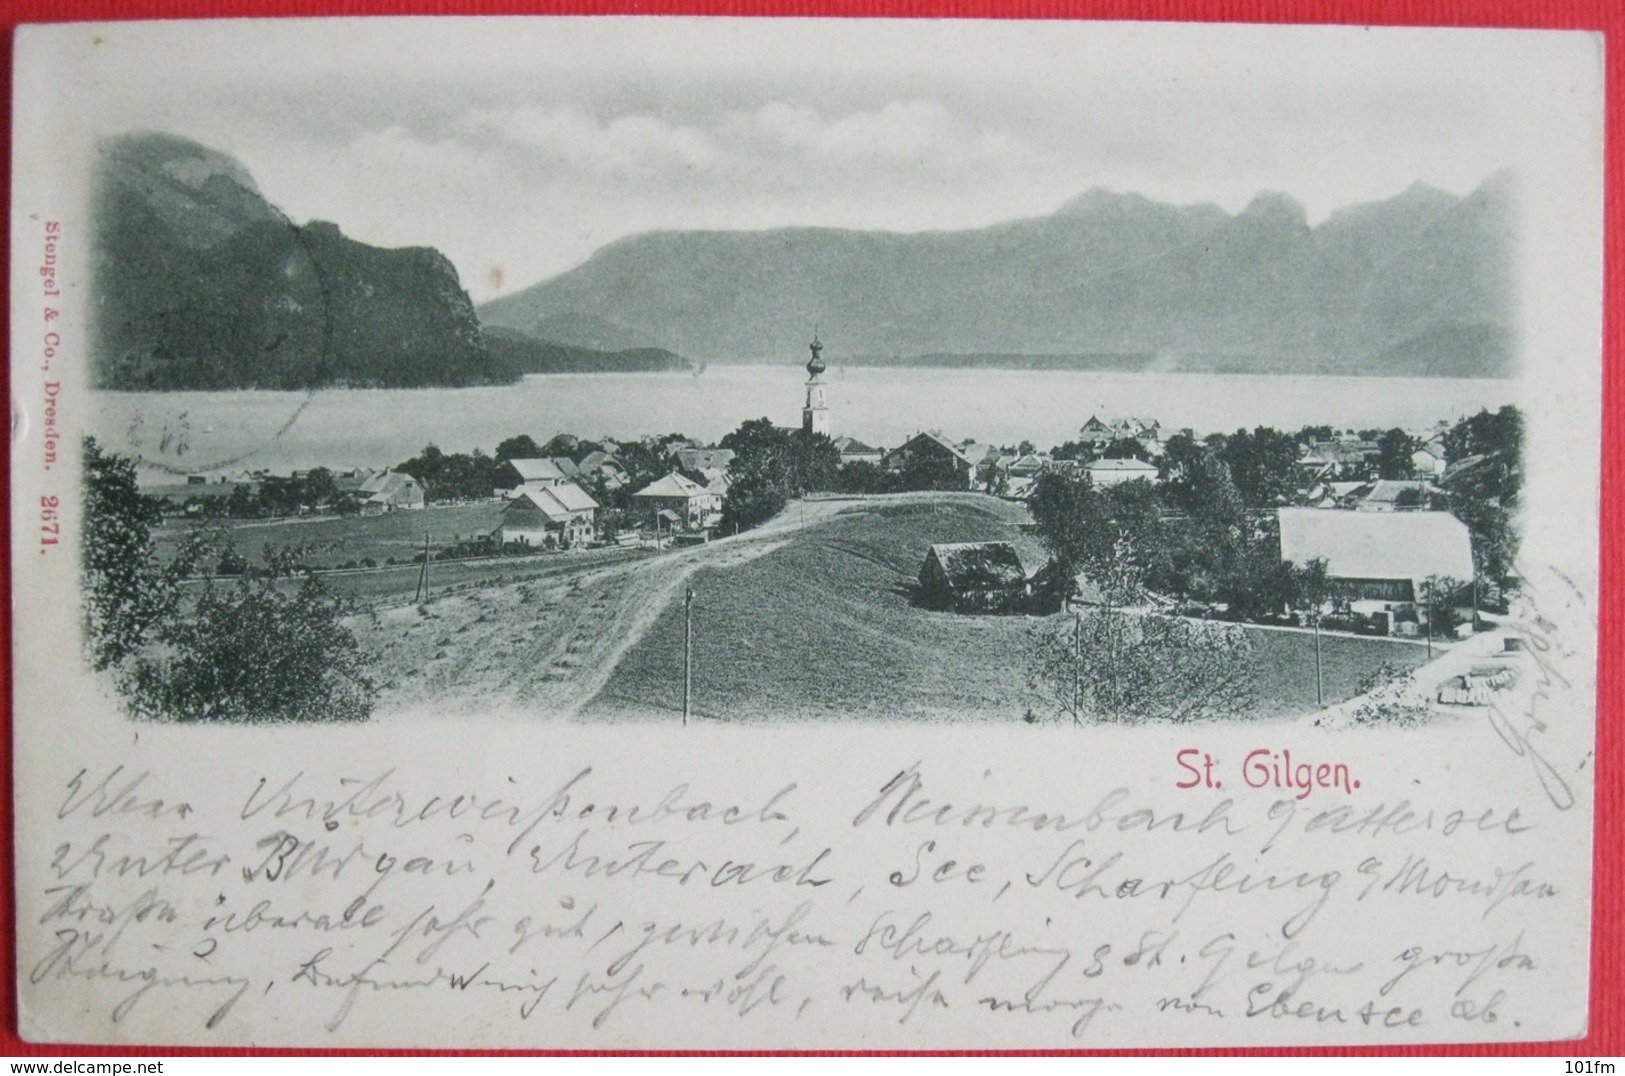 Stengel & Co., Dresden. 2671.
St. Gilgen.
Über Unterweißenbach, Weissenbach Gattersee
Unter Bürgau, Unterach, See, Scharfling & Mondsee
Straße überall sehr gut, zwischen Scharfling & St. Gilgen große
Steigung, befinde mich sehr wohl, reise morgen von Ebensee ab.
101fm